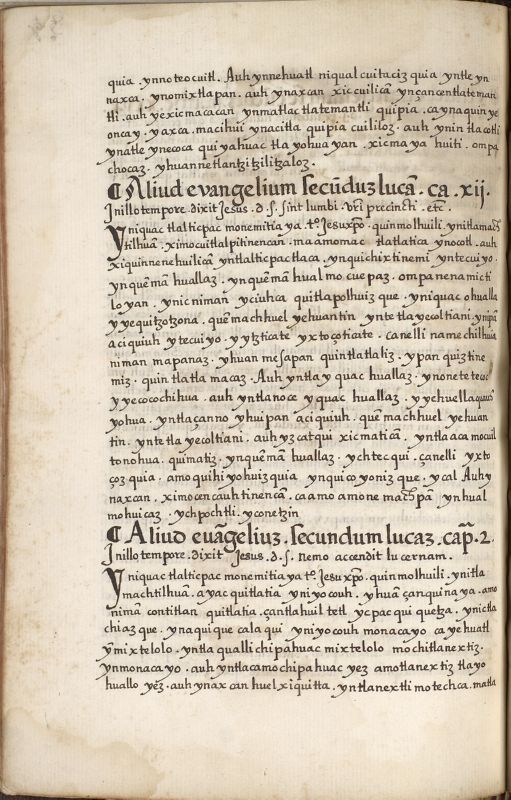 quia. ynnoteocuitl. Auh ynnehuatl niqualcuitaciz quia yntle yn
naxca. ynomixtlapan. auh ynaxcan xiccuilicã ynçancentlateman
tli. auh yexicmacacan ynmatlactlatemantli quipia. caynaquin ye
oncay. yaxca. macihui ynacitla quipia cuililoz. auh ynin tlacotli
ynatle ynecoca quiyahuac tlayohuayan. xicmayahuiti. ompa
chocaz. yhuannetlantzitzilitzaloz.
¶ Aliud evangelium secũduz lucã. ca. xij.
Jnillotempore. dixit Jesus. d. s. sint lumbi. vr̃i precincti. etc̃.
Yniquac tlalticpac monemitiaya. tº. Jesuxp̃o. quinmolhuili. ynitlamach
tilhuã. ximocuitlalpitinencan. maamomac tlatlatica ynocotl. auh
xiquinnenehuilicã yntlalticpactlaca. ynquichixtinemi yntecuiyo.
ynquẽmã huallaz. ynquẽmã hualmocuepaz. ompanenamicti
loyan. ynicnimañ yciuhca quitlapolhuizque. yniquac ohualla
yyequitzotzona. quẽmachhuel yehuantin yntetlayecoltiani. ynipã
aciquiuh ytecuiyo. yytzticate yxtoçoticate. canelli namechilhuia
niman mapanaz. yhuan mesapan quintlatlaliz. ypan quiztine
miz. quintlatlamacaz. Auh yntlayquac huallaz. ynonetetecoc
yyecocochihua. auh yntlanoce yquac huallaz. yyehuellaquauh
yohua. yntlaçanno yhuipan aciquiuh. quẽmachhuel yehuan
tin. yntetlayecoltiani. auh yzcatqui xicmaticã. yntlaacamocuil
tonohua. quimatiz. ynquẽmã huallaz. ychtecqui. çanelli yxto
çozquia. amoquihiyohuizquia ynquicoyonizque. ycal Auhy
naxcan. ximocencauhtinencã. caamoamonemachpã ynhual
mohuicaz. ychpochtli. yconetzin
¶ Aliud euãgeliuz. secundum lucaz. cap̃. 2.
Jnillotempore. dixit Jesus. d. s. nemo accendit lucernam.
Yniquac tlalticpac monemitiaya tº. Jesuxp̃o. quinmolhuili. ynitla
machtilhuã. ayac quitlatia yniyocouh. yhuã çanquinaya. amo
nimã contitlan quitlatia. çantlahuiltetl ycpac quiquetza. ynictla
chiazque. ynaquique calaqui yniyocouh monacayo cayehuatl
ymixtelolo. yntla qualli chipahuac mixtelolo mochitlanextiz.
ynmonacayo. auh yntlacamochipahuac yez amotlanextiz tlayo
huallo yez. auh ynaxcan huelxiquitta. yntlanextli motechca. matla